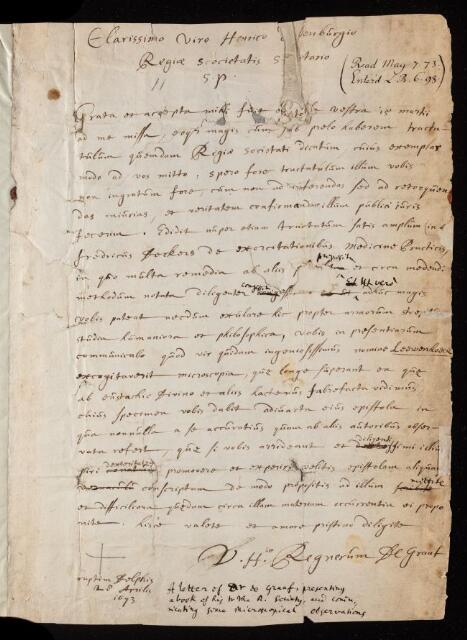 Clarissimo Viro Henrico denburgio
Regiæ Societatis S tario
S. P.
(Read May 7. 73.
Enterd L.B. 6. 93.)
Grata et accepta mihi fuit vestra ix martii
ad me missa, eoque magis cum sub prelo haberem tracta-
tulum quendam Regiæ Societati dicatum cuius exemplar
modo ad vos mitto, spero fore tractatulum illum vobis
non ingratum fore, cum non ad inferendas sed ad retorquen
das iniurias, et veritatem confirmandam illum publici iuris
fecerim. Edidit nuper etiam tractatum satis amplum
fredricus Deckers de exercitationibus Medicinæ Practicis,
in quo multa remedia ab aliis et circa medendi
methodum notata diligenter Ut vero adhuc magis
vobis pateat necdum exulare hic propter armorum strepitum
studia humaniora et philosophica, vobis in præsentiarum
communicabo quod vir quidam ingeniosissimus nomine Leewenhoeck
excogitaverit microscopia, quæ longe superant ea quæ
ab eustachio Divino et aliis hactenus fabrefacta vidimus
cuius specimen vobis dabit adiuncta eius epistola in
qua nonnulla a se accuratius quam ab aliis autoribus obser-
vata refert, quæ si vobis arrideant et diligenti ssimi illius
viri dexteritatem promovere et experiri velitis epistolam aliquam
conscriptam de modo propositis ad illum mittite
et difficiliora quædam circa illam materiam occurrentia ei propo
nite. hisce valete et amore pristino diligite
V. H.m Regnerum De Graaf
raptim Delphis
28 Aprilis
1673
A letter of Dr de Graaf, presenting
a book of his to the R. Society, and comu-
nicating some microscopical observations